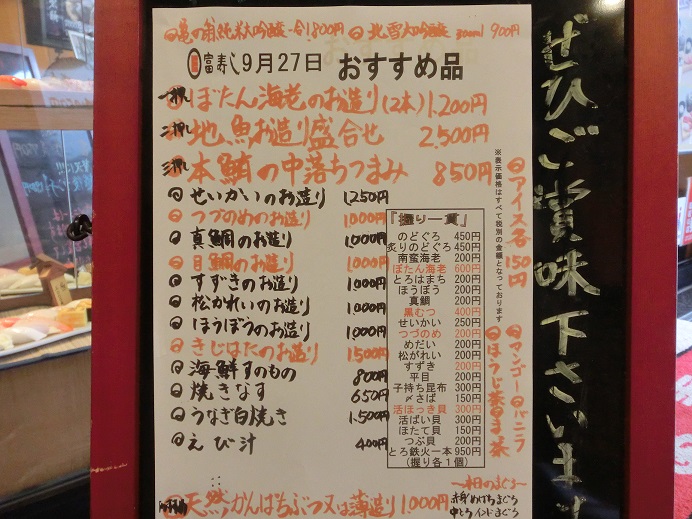 亀の翁純米大吟醸一合1800円 北雪大吟醸 300ml 900円
富寿し 9月27日 おすすめ品
一押 ぼたん海老のお造り(2本) 1,200円
二押 地魚お造り盛合せ 2,500円
三押 本鮪の中落ちつまみ 850円
せいかいのお造り 1250円
つづのめのお造り 1,000円
真鯛のお造り 1,000円
目鯛のお造り 1,000円
すずきのお造り 1,000円
松がれいのお造り 1,000円
ほうぼうのお造り 1,000円
きじはたのお造り 1,500円
海鮮すのもの 800円
焼きなす 650円
うなぎ白焼き 1,500円
えび汁 400円
天然かんぱちぶつ又は薄造り 1,000円
『握り一貫』
のどぐろ 450円
炙りのどぐろ 450円
南蛮海老 200円
ぼたん海老 600円
とろはまち 200円
ほうぼう 200円
真鯛 200円
黒むつ 400円
せいかい 250円
つづのめ 200円
めだい 200円
松がれい 200円
すずき 200円
平目 200円
子持ち昆布 300円
〆さば 150円
活ほっき貝 300円
活ばい貝 300円
ほたて貝 150円
つぶ貝 200円
とろ鉄火一本 950円
(握り各1個)
※表示価格はすべて税別の金額となっております
アイス各150円
マンゴー バニラ
ほうじ茶 抹茶
〜本日のまぐろ〜
赤身 めばちまぐろ
中とろ インドまぐろ
ぜひご賞味下さいます